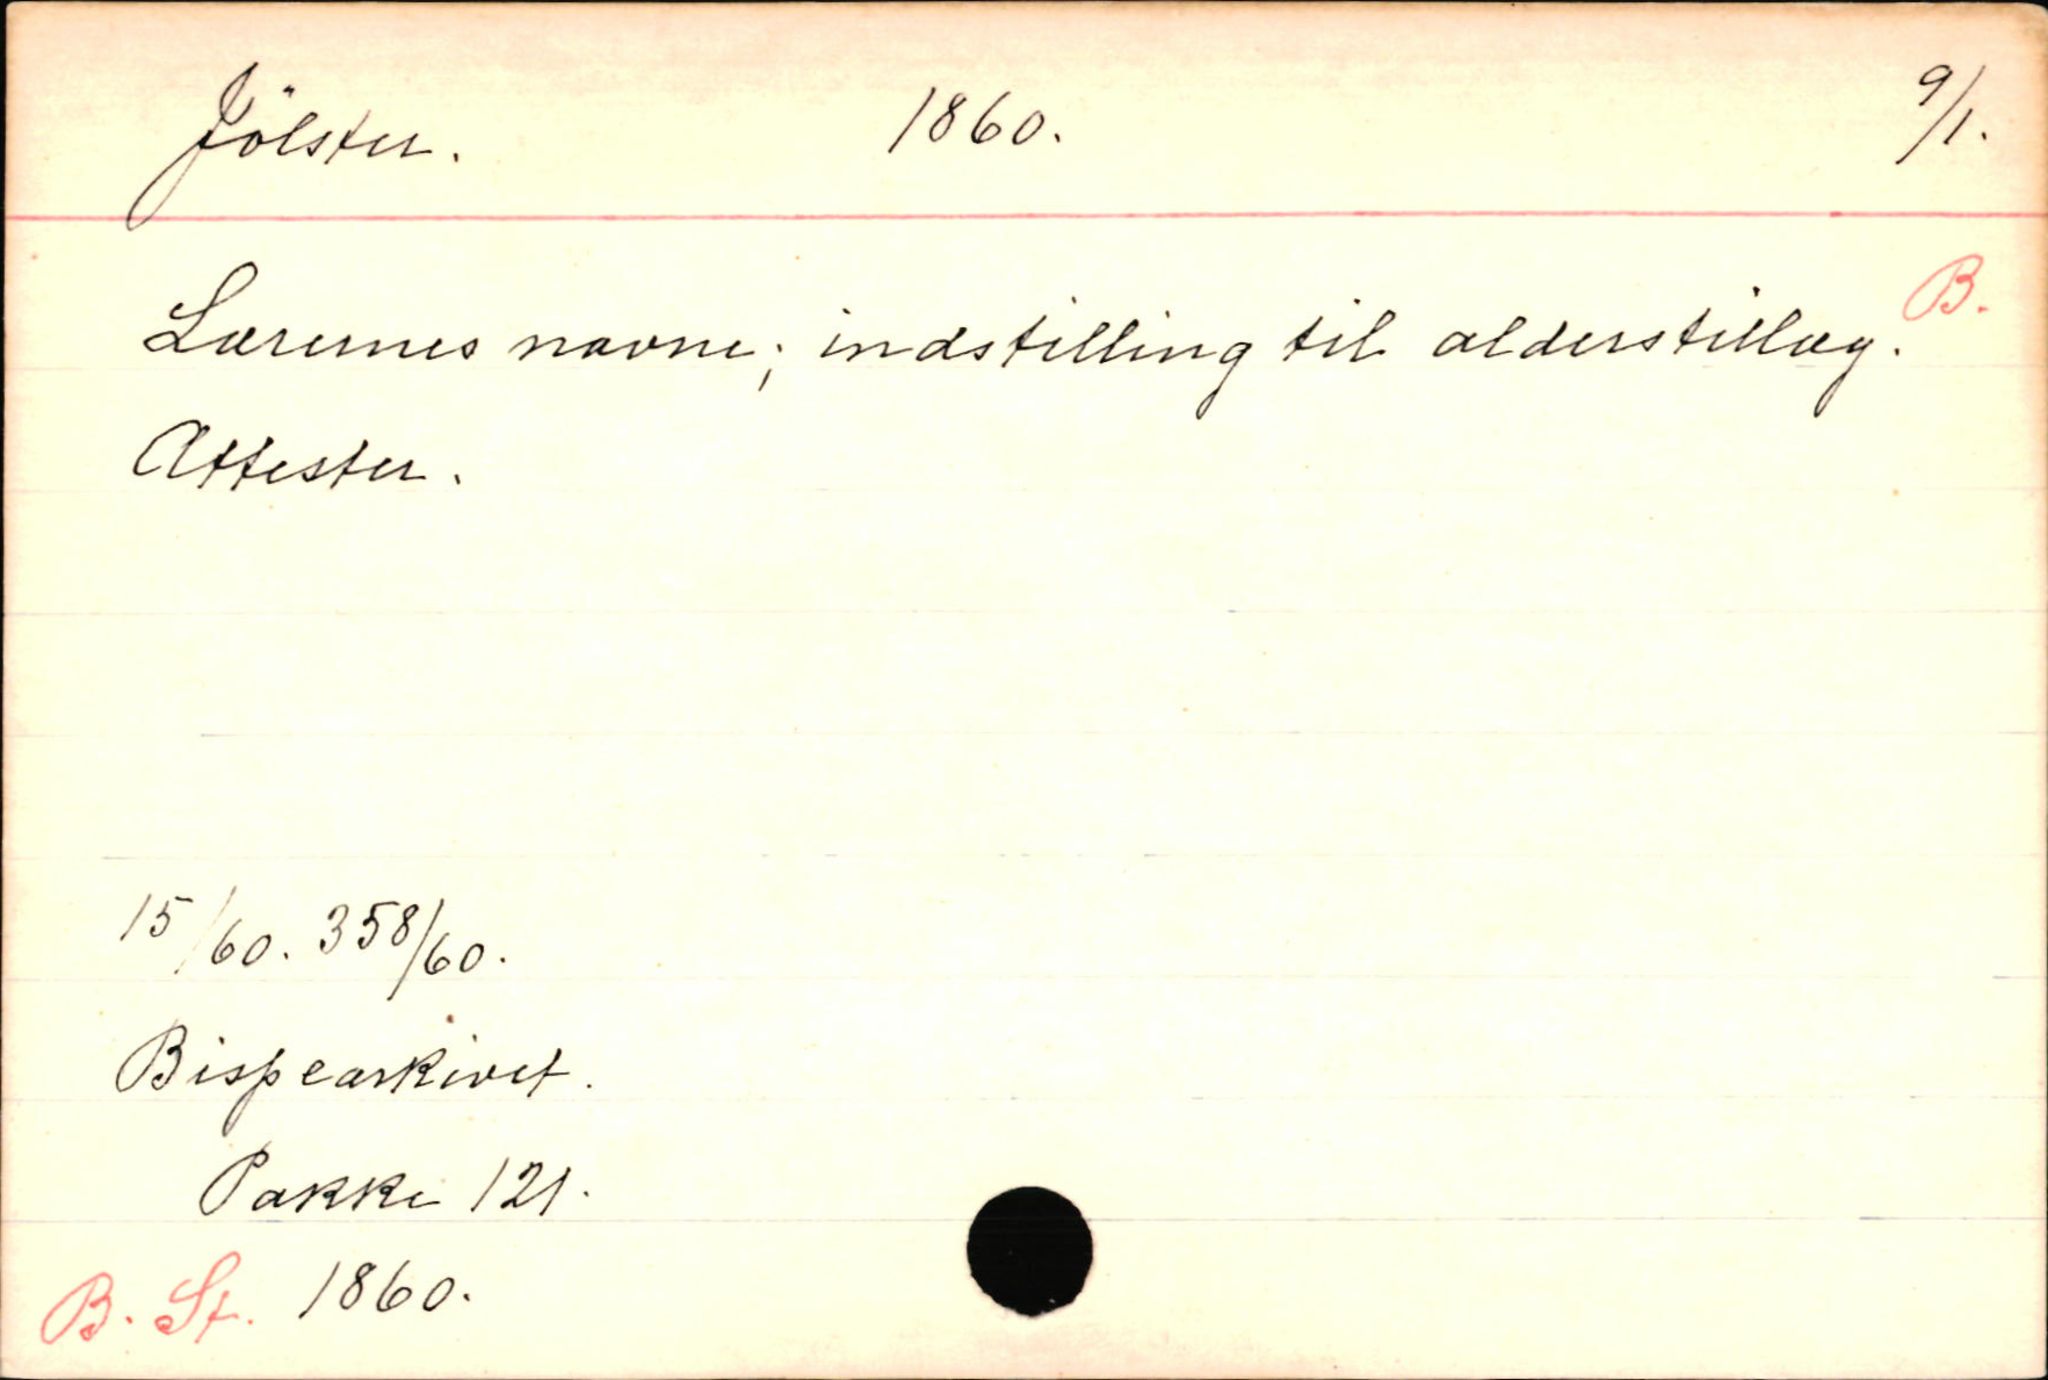 Jölster. 1860. 9/1.
B.
Lærernes navne; indstilling til alderstillæg.
Attester.
15/60. 358/60.
Bispearkivet.
Pakke 121.
B. St. 1860.